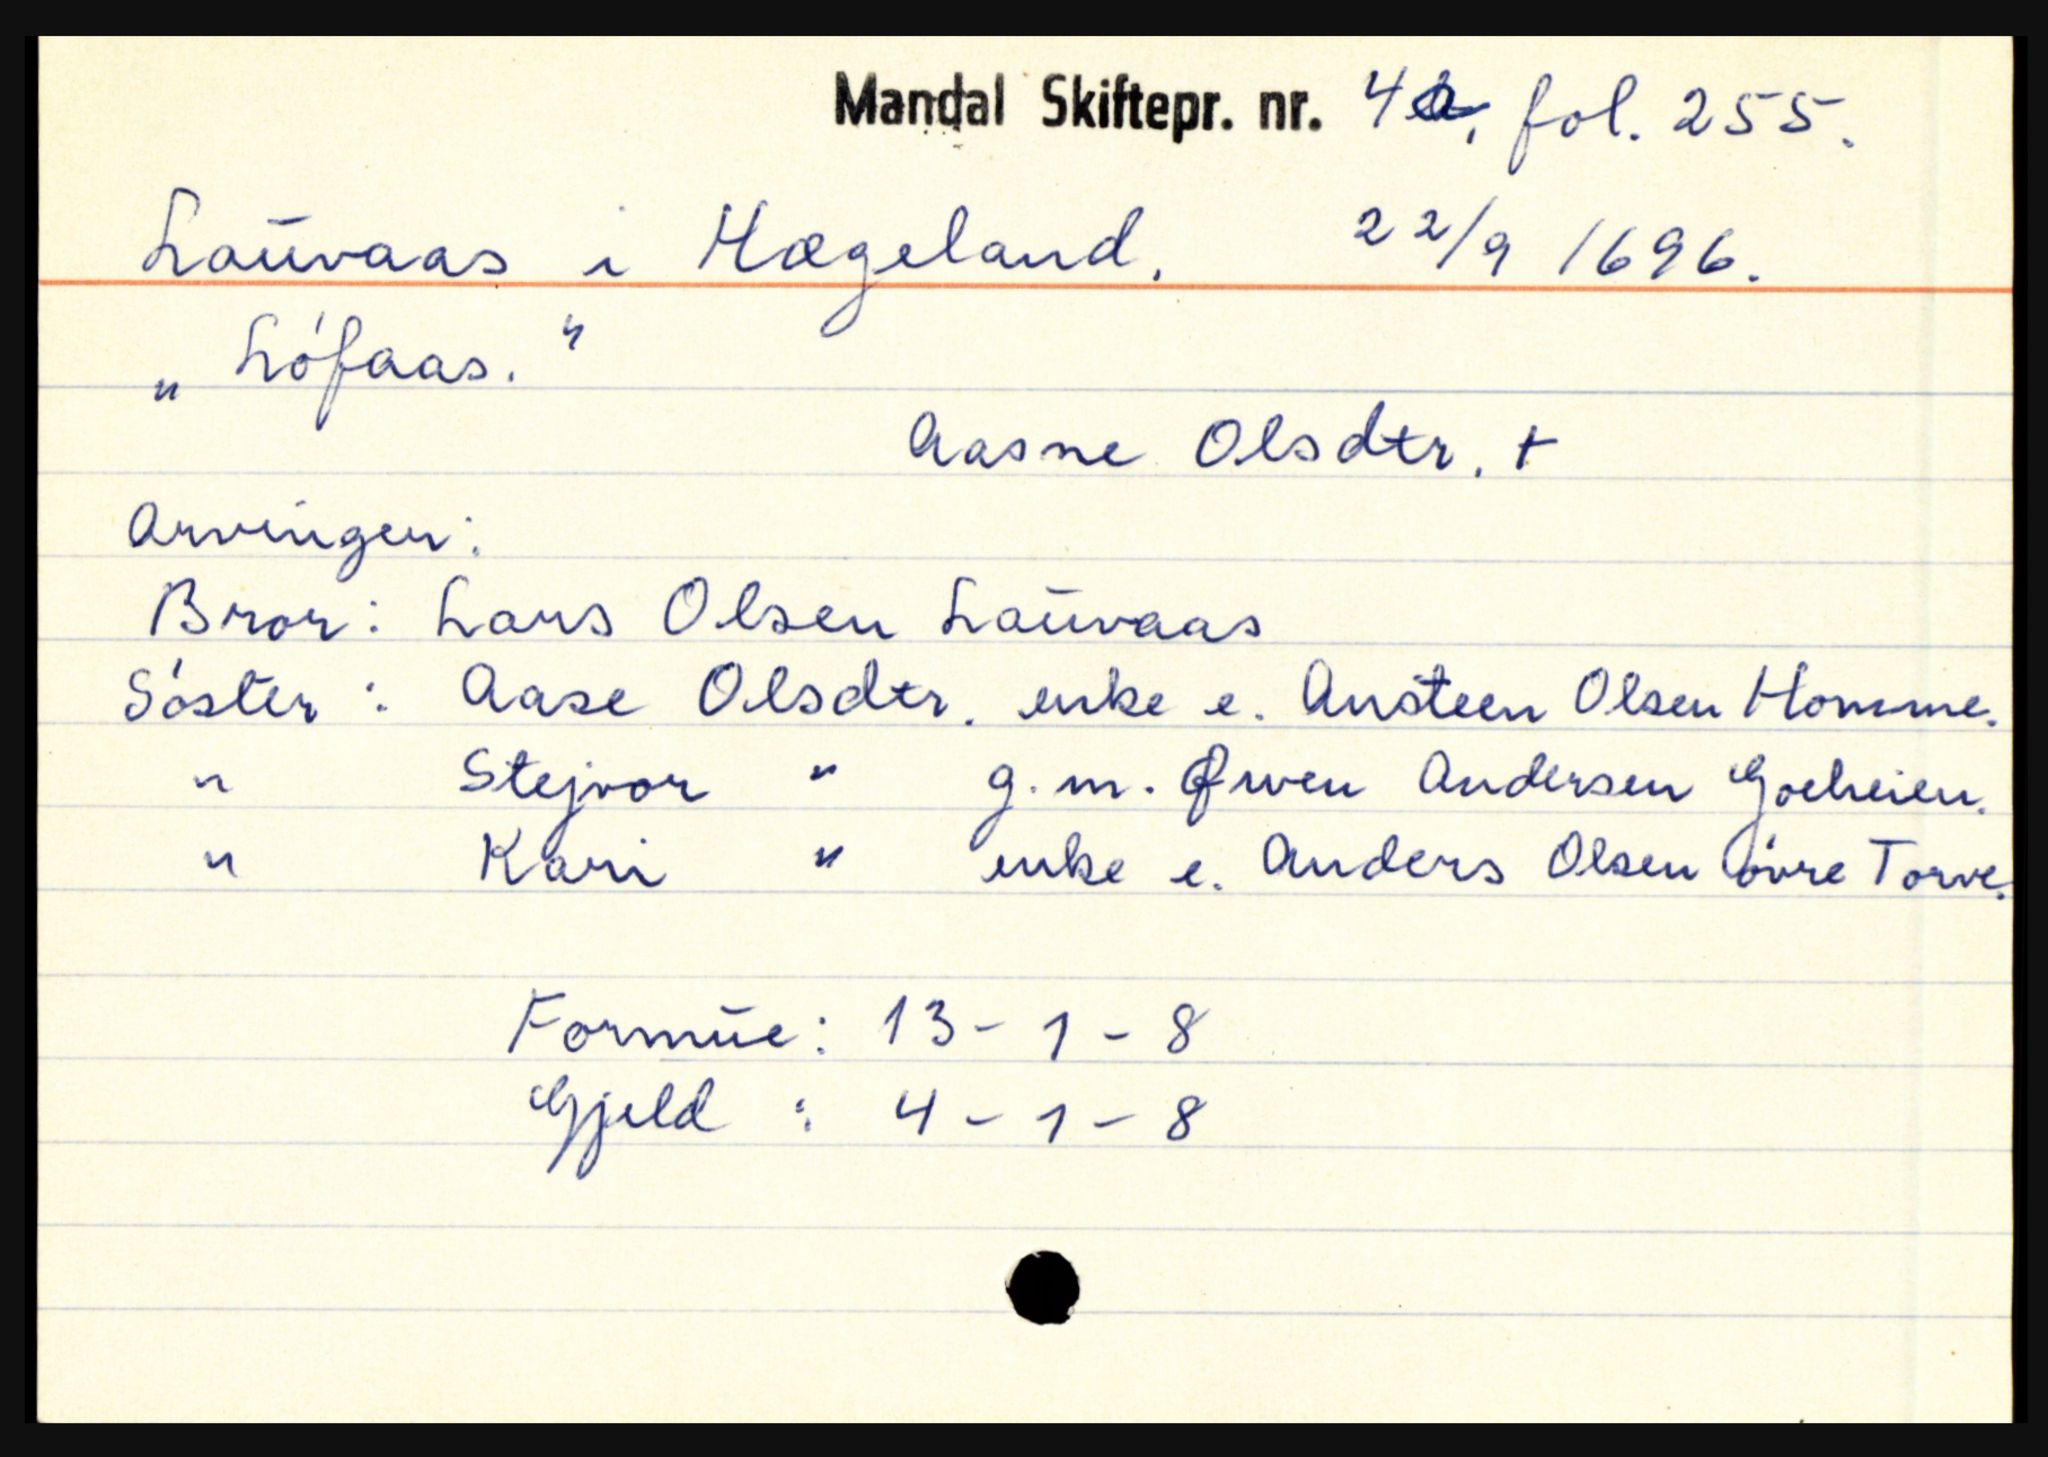 Mandal Skiftepr. nr. 4a, fol. 255.
Lauvaas i Hægeland. 22/9 1696.
„ Lófaas. "
Aasne Olsdtr. +
Arvinger:
Bror: Lars Olsen Lauvaas
Sóster : Aase Olsdtr. enke e. Ansteen Olsen Homme.
" Stejvor " g.m. Øwen Andersen Goeheien.
" Kari " enke e. Anders Olsen óvre Torve.
Formue: 13 - 1 - 8
Gjeld : 4 - 1 - 8